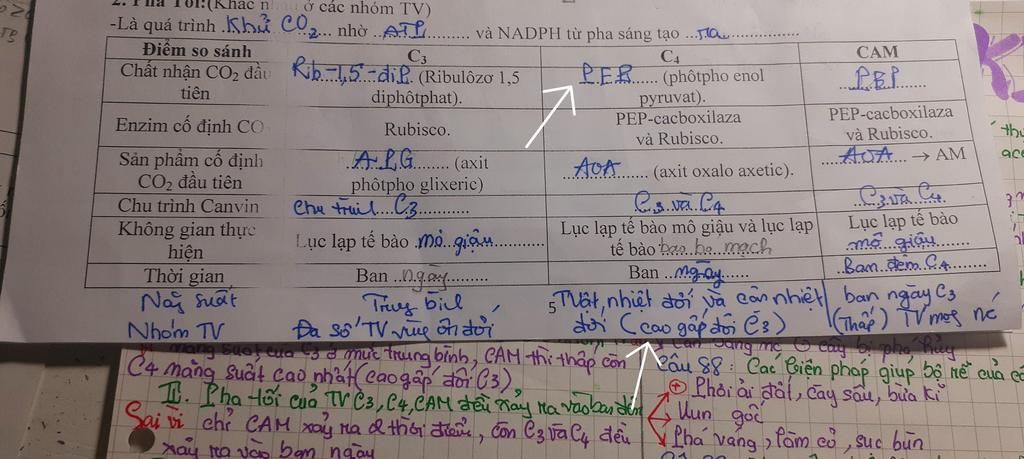 2. Pha Tối:(Khác nhau ở các nhóm TV)
-Là quá trình .Khử CO2... nhờ ..ATP.. và NADPH từ pha sáng tạo ..ra................
Điểm so sánh C3 C4 CAM
Chất nhận CO2 đầu tiên Rib-1,5-diP. (Ribulôzơ 1,5 diphôtphat). ..P.E.P...... (phôtpho enol pyruvat). ....PEP.......
Enzim cố định CO Rubisco. PEP-cacboxilaza và Rubisco. PEP-cacboxilaza và Rubisco.
Sản phẩm cố định CO2 đầu tiên ..A.P.G........ (axit phôtpho glixeric) ..AOA....... (axit oxalo axetic). ..AOA.... → AM
Chu trình Canvin chu trình C3........... C3 và C4 C3 và C4
Không gian thực hiện Lục lạp tế bào mô giậu............. Lục lạp tế bào mô giậu và lục lạp tế bào bao bó mạch Lục lạp tế bào mô giậu
Thời gian Ban ..ngày.......... Ban ..ngày...... Ban đêm C4........
Năg suất Trug bìh ban ngày C3
5
Nhóm TV Đa số TV vùg ôn đới TVật nhiệt đới và cận nhiệt đới (cao gấp đôi C3) (Thấp) TV mọg nc
C3 ở mức trung bình, CAM thì thấp còn
C4 năng suất cao nhất (cao gấp đôi C3)
II. Pha tối của TV C3, C4, CAM đều xảy ra vào ban đêm
Sai vì chỉ CAM xảy ra 2 thời điểm, còn C3 và C4 đều
xảy ra vào ban ngày
Câu 88: Các biện pháp giúp bộ rễ của câ
+ Phơi ải đất, cày sâu, bừa kĩ
Vun gốc
Phá váng, làm cỏ, sục bùn